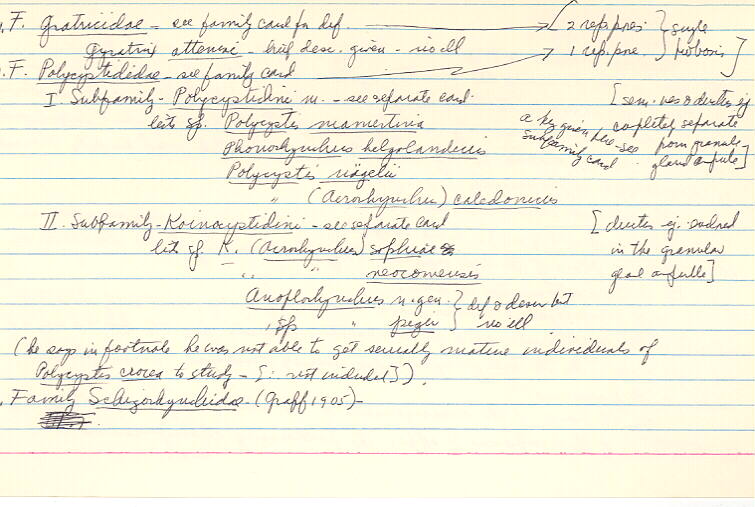 . F. Gratricidae - see family card for def. → 2 rep. pres. } single
Gyratrix attemsi - brief desc. given - no ill → 1 rep. pre. } proboscis ]
. F. Polycystididae - see family card
I. Subfamily - Polycystidini m. - see separate card [ sem. ves & ductus ej
lists sp. Polycystis mamertina a key given here - see completely separate
Phonorhynchus helgolandicus subfamily card from granule-
Polycystis nägelii gland ampulle]
" (Acrorhynchus) caledonicus
II. Subfamily - Koinocystidini - see separate card [ductus ej. inclosed
lists sp. K. (Acrorhynchus) sophiae in the granular
" " neocomensis gland ampulle]
Anoplorhynchus n. gen. } def & descr but
, sp " piger } no ill
(he says in footnote he was not able to get sexually mature individuals of
Polycystis crocea to study - [∴ not included]).
. Family Schizorhynchidae - (Graff 1905) -